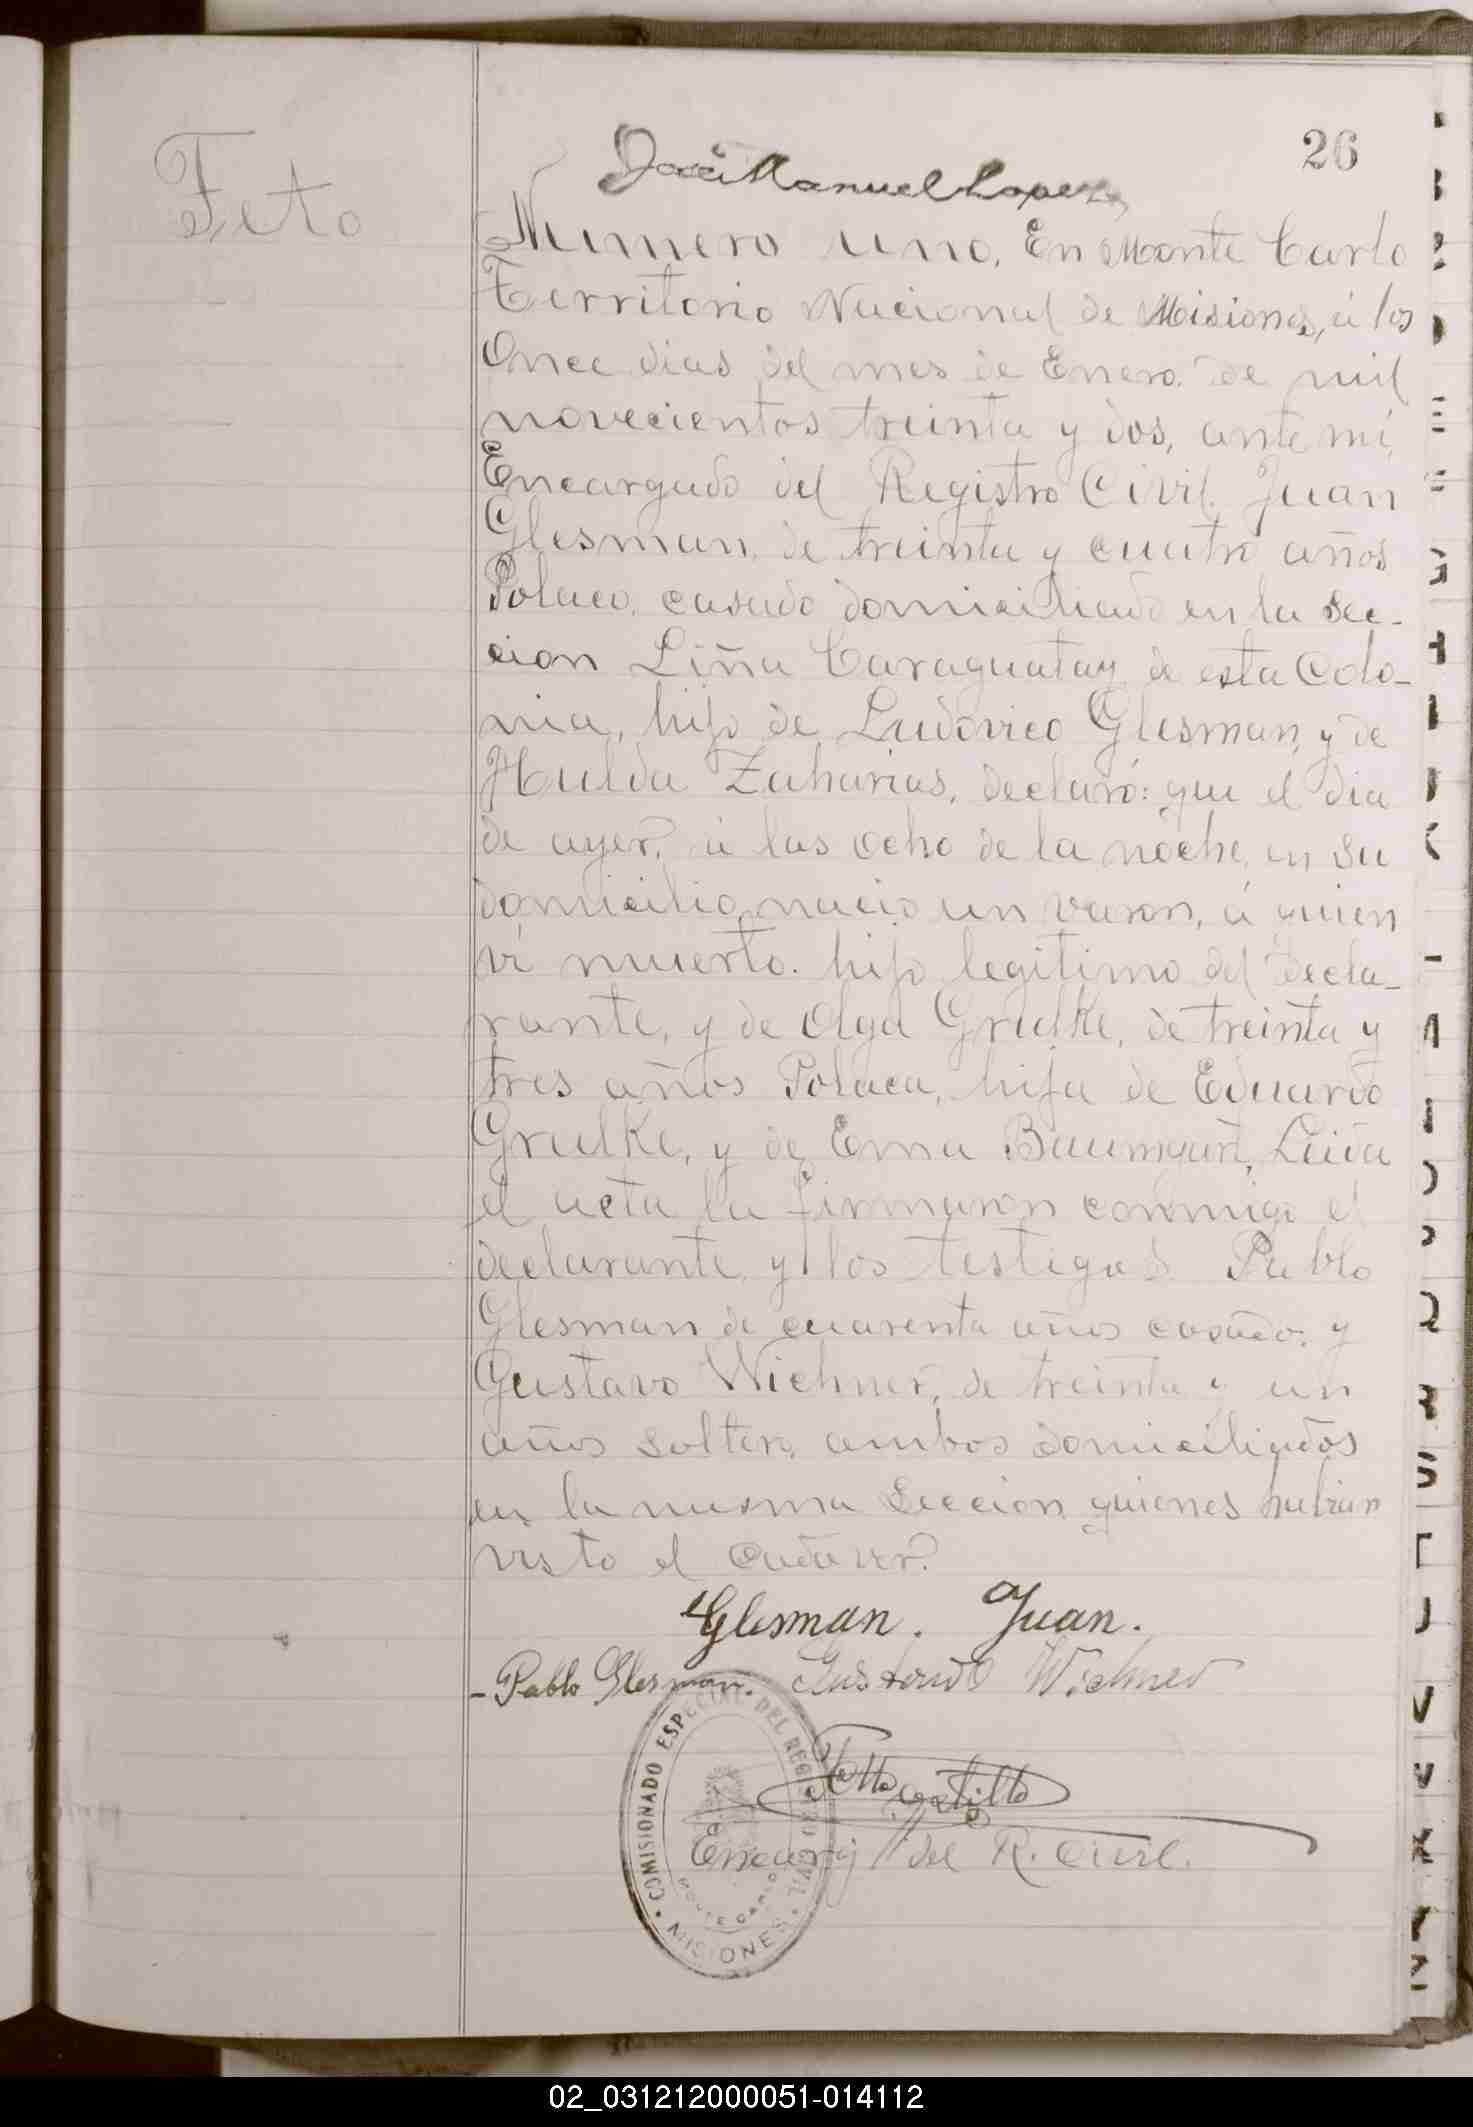 26
José Manuel Lopez
Feto
Numero uno. En Monte Carlo
Territorio Nacional de Misiones, á los
Once dias del mes de Enero. de mil
novecientos treinta y dos, ante mi,
Encargado del Registro Civil. Juan
Glesman, de treinta y cuatro años
Polaco. casado domiciliado en la Sec-
cion Liña Caraguatay de esta Colo-
nia, hijo de Ludovico Glesman, y de
Hulda Zaharias, declaró: que el dia
de ayer, á las ocho de la noche, en su
domicilio nacio un varon, á quien
vi muerto. hijo legitimo del decla-
rante, y de Olga Grulke, de treinta y
tres años Polaca, hija de Eduardo
Grulke, y de Ema Baumgart, Leida
el acta la firmaron conmigo el
declarante y los testigos Pablo
Glesman de cuarenta años casado. y
Gustavo Wichner, de treinta y un
años soltero, ambos domiciliados
en la misma Seccion quienes habian
visto el Cadaver.
Glesman. Juan.
- Pablo Glesman. Gustavo Wichner
Otto Castillo
Encarg del R. Civil.
COMISIONADO ESPECIAL DEL REGISTRO CIVIL
MONTE CARLO
MISIONES
02_031212000051-014112